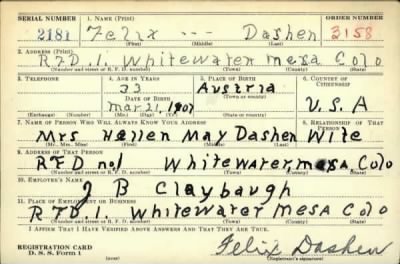 SERIAL NUMBER 1. NAME (Print) ORDER NUMBER
2181 Felix --- Dashen 3158
(First) (Middle) (Last)
2. ADDRESS (Print)
RFD.1. Whitewater mesa Colo
(Number and street or R. F. D. number) (Town) (County) (State)
3. TELEPHONE 4. AGE IN YEARS 5. PLACE OF BIRTH 6. COUNTRY OF CITIZENSHIP
33 Austria
DATE OF BIRTH (Town or county)
Mar 21, 1907 U.S.A
(Exchange) (Number) (Mo.) (Day) (Yr.) (State or country)
7. NAME OF PERSON WHO WILL ALWAYS KNOW YOUR ADDRESS 8. RELATIONSHIP OF THAT PERSON
Mrs Hellen May Dashen Wife
(Mr., Mrs., Miss) (First) (Middle) (Last)
9. ADDRESS OF THAT PERSON
RFD no1 Whitewater mesa Colo
(Number and street or R. F. D. number) (Town) (County) (State)
10. EMPLOYER'S NAME
J B Claybaugh
11. PLACE OF EMPLOYMENT OR BUSINESS
RFD.1. Whitewater mesa Colo
(Number and street or R. F. D. number) (Town) (County) (State)
I AFFIRM THAT I HAVE VERIFIED ABOVE ANSWERS AND THAT THEY ARE TRUE.
REGISTRATION CARD
D. S. S. Form 1 (over) Felix Dashen
(Registrant's signature)